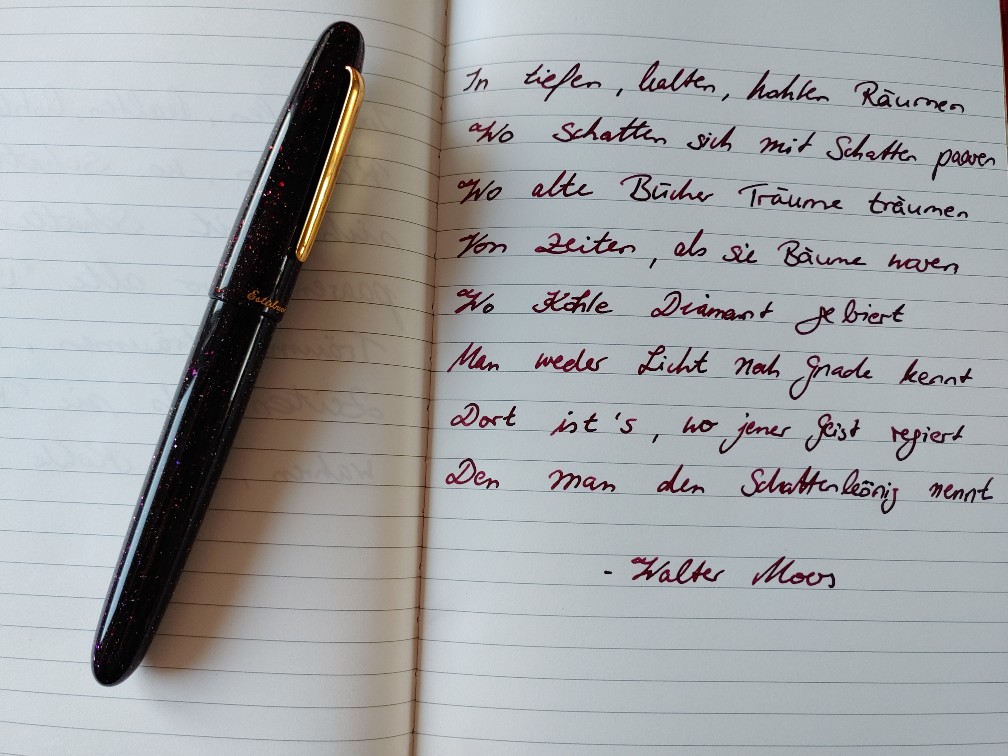 In tiefen, kalten, hohlen Räumen
Wo Schatten sich mit Schatten paaren
Wo alte Bücher Träume träumen
Von Zeiten, als sie Bäume waren
Wo Kohle Diamant gebiert
Man weder Licht noch Gnade kennt
Dort ist's, wo jener Geist regiert
Den man den Schattenkönig nennt
- Walter Moers